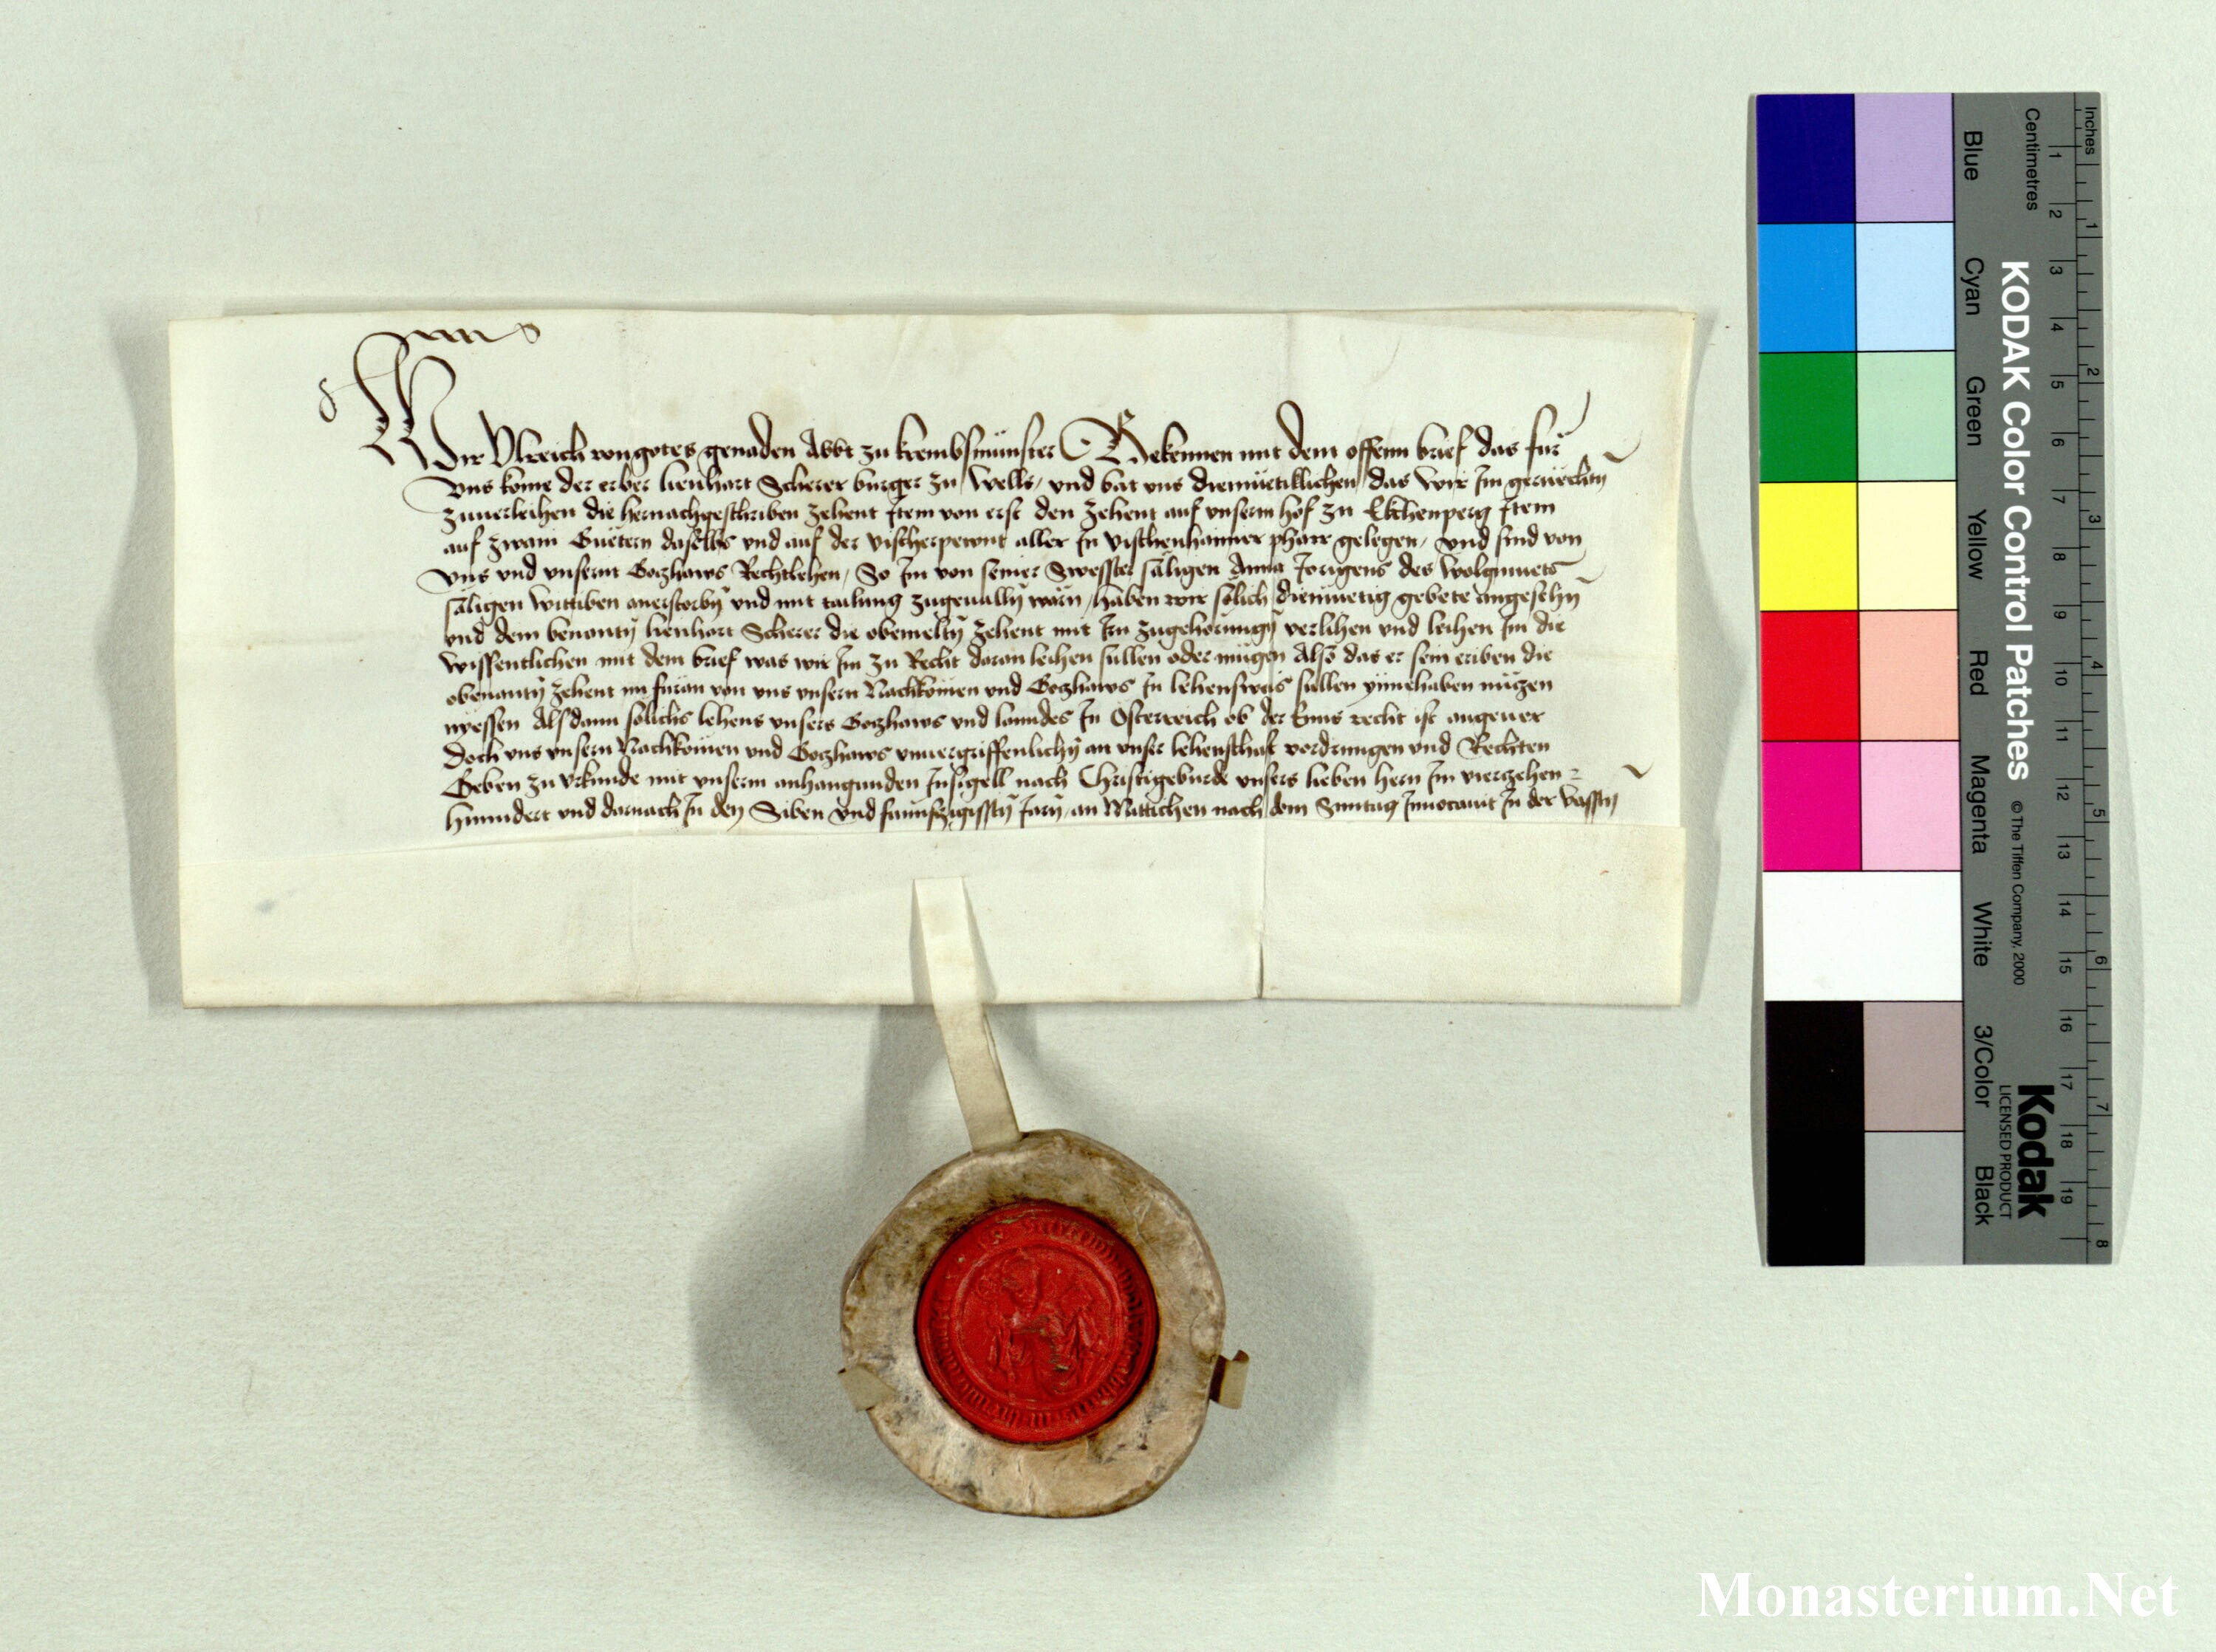 Wir Ulreich von gotes genaden Abbt zu krembsmünster Bekennen mit dem offenn brief das für
vns kome der erber lienhart Scherer burger zu Wells, vnd bat vns diemüetiklichen das wir Im geruechtn̄
zuuerleihen die hernachgeschriben zehent Item von erst den zehent auf vnserm hof zu Ekchenperg Item
auf zwain Guetern daselbs vnd auf der vischerpewnt aller In vischenhaimer pharr gelegen, vnd sind von
vns vnd vnserm Gozhaws Rechtlehen, So Im von seiner Swester säligen Anna Jorigens des
säligen Wittiben anerstorbn̄ vnd mit tailung zugeualln̄ wärn, haben wir sölich diemuetig gebete angesehn̄
vnd dem benantn̄ lienhart Scherer die obemeltn̄ zehent mit Irn zugehorungn̄ verlihen vnd leihen Im die
wissentlichen mit dem brief was wir Im zu Recht daran leihen sullen oder mügen Also das er sein eriben die
obenantn̄ zehent nu furan von vns vnsern Nachkömen vnd Gozhaws In lehensweis sullen ynnehaben nüzen
nyessen Alsdann sölichs lehens vnsers Gozhaws vnd lanndes In Österreich ob der Enns recht ist angeuer
Doch vns vnsern Nachkömen vnd Gozhaws vnuergriffenlichn̄ an vnser lehenschaft vordrungen vnd Rechten
Geben zu vrkunde mit vnserm anhangunden Insigell nach Christi geburde vnsers lieben hern Im vierzehen
hunndert vnd darnach In den Siben vnd faunfzigisstn̄ Jarn̄, an Mittichen nach dem Sunntag Inuocauit In der vasstn̄
Inches
Centimetres
1 2 3 4 5 6 7 8
1 2 3 4 5 6 7 8 9 10 11 12 13 14 15 16 17 18 19
KODAK Color Control Patches © The Tiffen Company, 2000
Kodak
LICENSED PRODUCT
Blue Cyan Green Yellow Red Magenta White 3/Color Black
Monasterium.Net